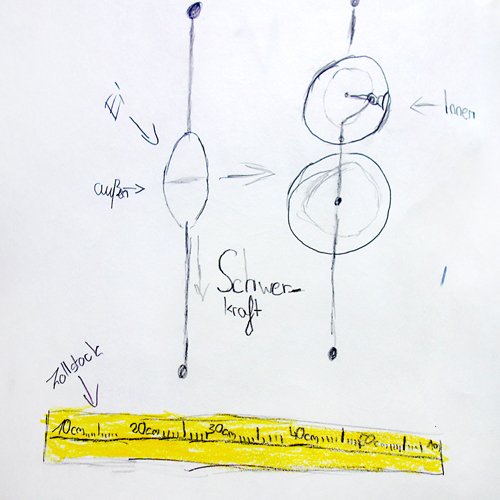 Ei
Innen
außen
Schwer-
kraft
Zollstock
10cm 20cm 30cm 40cm 50cm